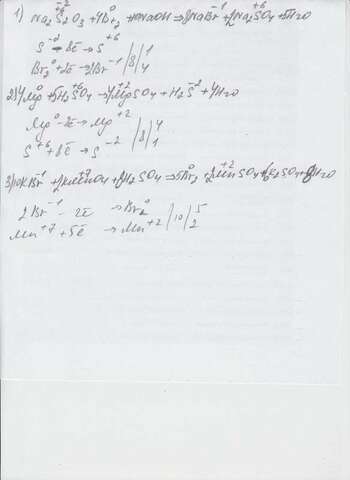 1) Na₂S₂O₃ + 4Br₂ + 10NaOH → 8NaBr + 2Na₂SO₄ + 5H₂O
S⁻² - 8ē → S⁺⁶ | | 1
Br₂⁰ + 2ē → 2Br⁻¹ | 8 | 4
2) 4Mg⁰ + 5H₂SO₄ → 4MgSO₄ + H₂S⁻² + 4H₂O
Mg⁰ - 2ē → Mg⁺² | | 4
S⁺⁶ + 8ē → S⁻² | 8 | 1
3) 10KBr⁻¹ + 2KMnO₄ + 8H₂SO₄ → 5Br₂⁰ + 2MnSO₄ + 6K₂SO₄ + 8H₂O
2Br⁻¹ - 2ē → Br₂⁰ | | 5
Mn⁺⁷ + 5ē → Mn⁺² | 10 | 2